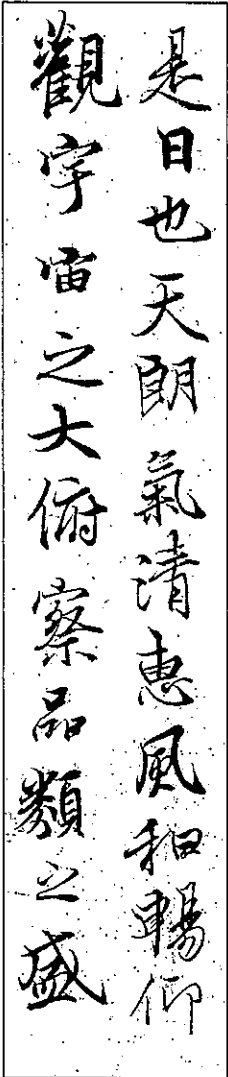 是日也天朗氣清惠風和暢仰
觀宇宙之大俯察品類之盛